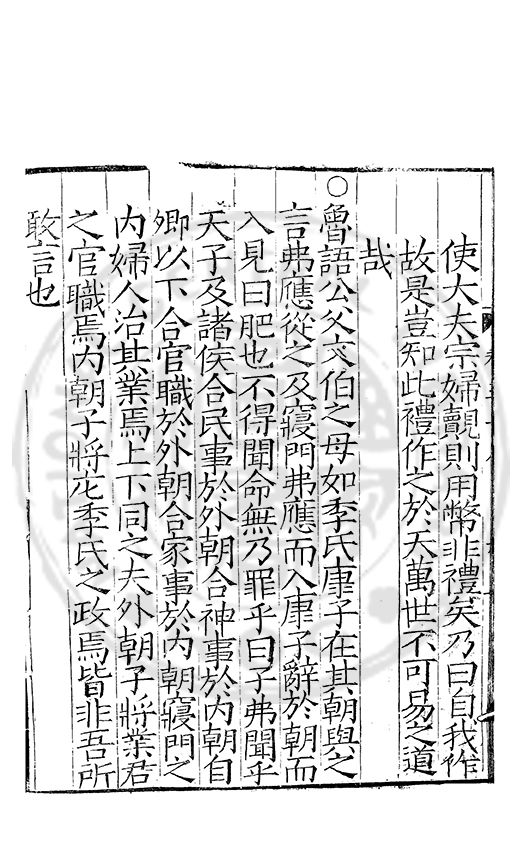 使大夫宗婦覿則用幣非禮矣乃曰自我作
故是豈知此禮作之於天萬世不可易之道
哉
○魯語公父文伯之母如季氏康子在其朝與之
言弗應從之及寢門弗應而入康子辭於朝而
入見曰肥也不得聞命無乃罪乎曰子弗聞乎
天子及諸侯合民事於外朝合神事於内朝自
卿以下合官職於外朝合家事於内朝寢門之
内婦人治其業焉上下同之夫外朝子將業君
之官職焉内朝子將庀季氏之政焉皆非吾所
敢言也